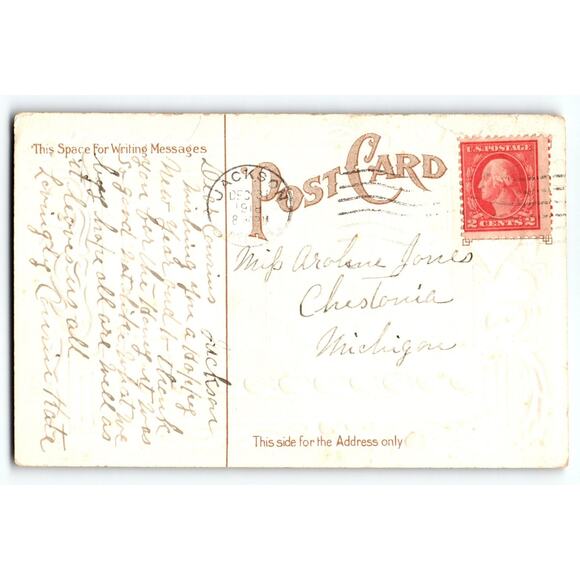 This Space for Writing Messages
POST CARD
JACKSON
DEC
191
8
U.S. POSTAGE
2 CENTS 2
Miss Aroline Jones
Chestonia
Michigan
This side for the Address only
Jackson
Dear
Wishing you a Happy
New Year and to thank
you for the Hang it was
so good
hope all are well as
it leaves us all
Lovingly Cousin Kate